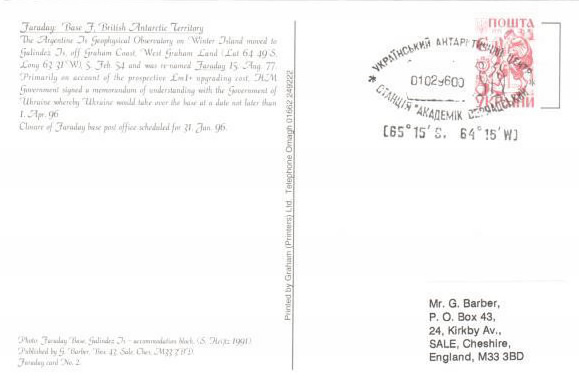 Faraday: Base F, British Antarctic Territory
The Argentine Is Geophysical Observatory on Winter Island moved to
Galindez Is, off Graham Coast, West Graham Land (Lat 64 49 S,
Long 63 31 W) 5, Feb. 54 and was re-named Faraday 15, Aug. 77.
Primarily on account of the prospective £m1+ upgrading cost, H.M
Government signed a memorandum of understanding with the Government of
Ukraine whereby Ukraine would take over the base at a date not later than
1, Apr. 96
Closure of Faraday base post office scheduled for 31, Jan. 96
Photo: Faraday Base, Galindez Is - accommodation block, (S. 1991)
Published by G. Barber, Box 43, Sale, Ches, M33 7BD.
Faraday card No. 2.
Printed by Graham (Printers) Ltd. Telephone Omagh 01662 249222
ПОШТА
УКРАЇНИ
* УКРАЇНСЬКИЙ АНТАРКТИЧНИЙ ЦЕНТР *
01029600
СТАНЦІЯ "АКАДЕМІК ВЕРНАДСЬКИЙ"
[65°15'S, 64°16'W]
Mr. G. Barber,
P. O. Box 43,
24, Kirkby Av.,
SALE, Cheshire,
England, M33 3BD